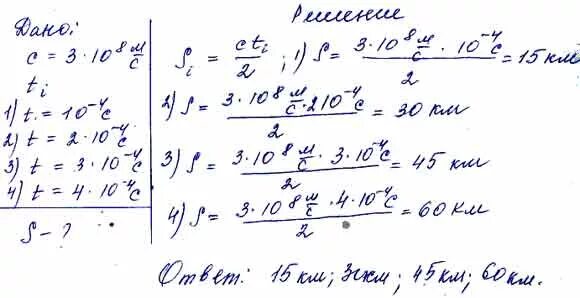 Дано:
c = 3·10⁸ м/с
tᵢ
1) t = 10⁻⁴ с
2) t = 2·10⁻⁴ с
3) t = 3·10⁻⁴ с
4) t = 4·10⁻⁴ с
S – ?
Решение
Sᵢ = ctᵢ/2 ; 1) S = 3·10⁸ м/с · 10⁻⁴ с / 2 = 15 км
2) S = 3·10⁸ м/с · 2 10⁻⁴ с / 2 = 30 км
3) S = 3·10⁸ м/с · 3·10⁻⁴ с / 2 = 45 км
4) S = 3·10⁸ м/с · 4·10⁻⁴ с / 2 = 60 км
Ответ: 15 км; 30 км; 45 км; 60 км.